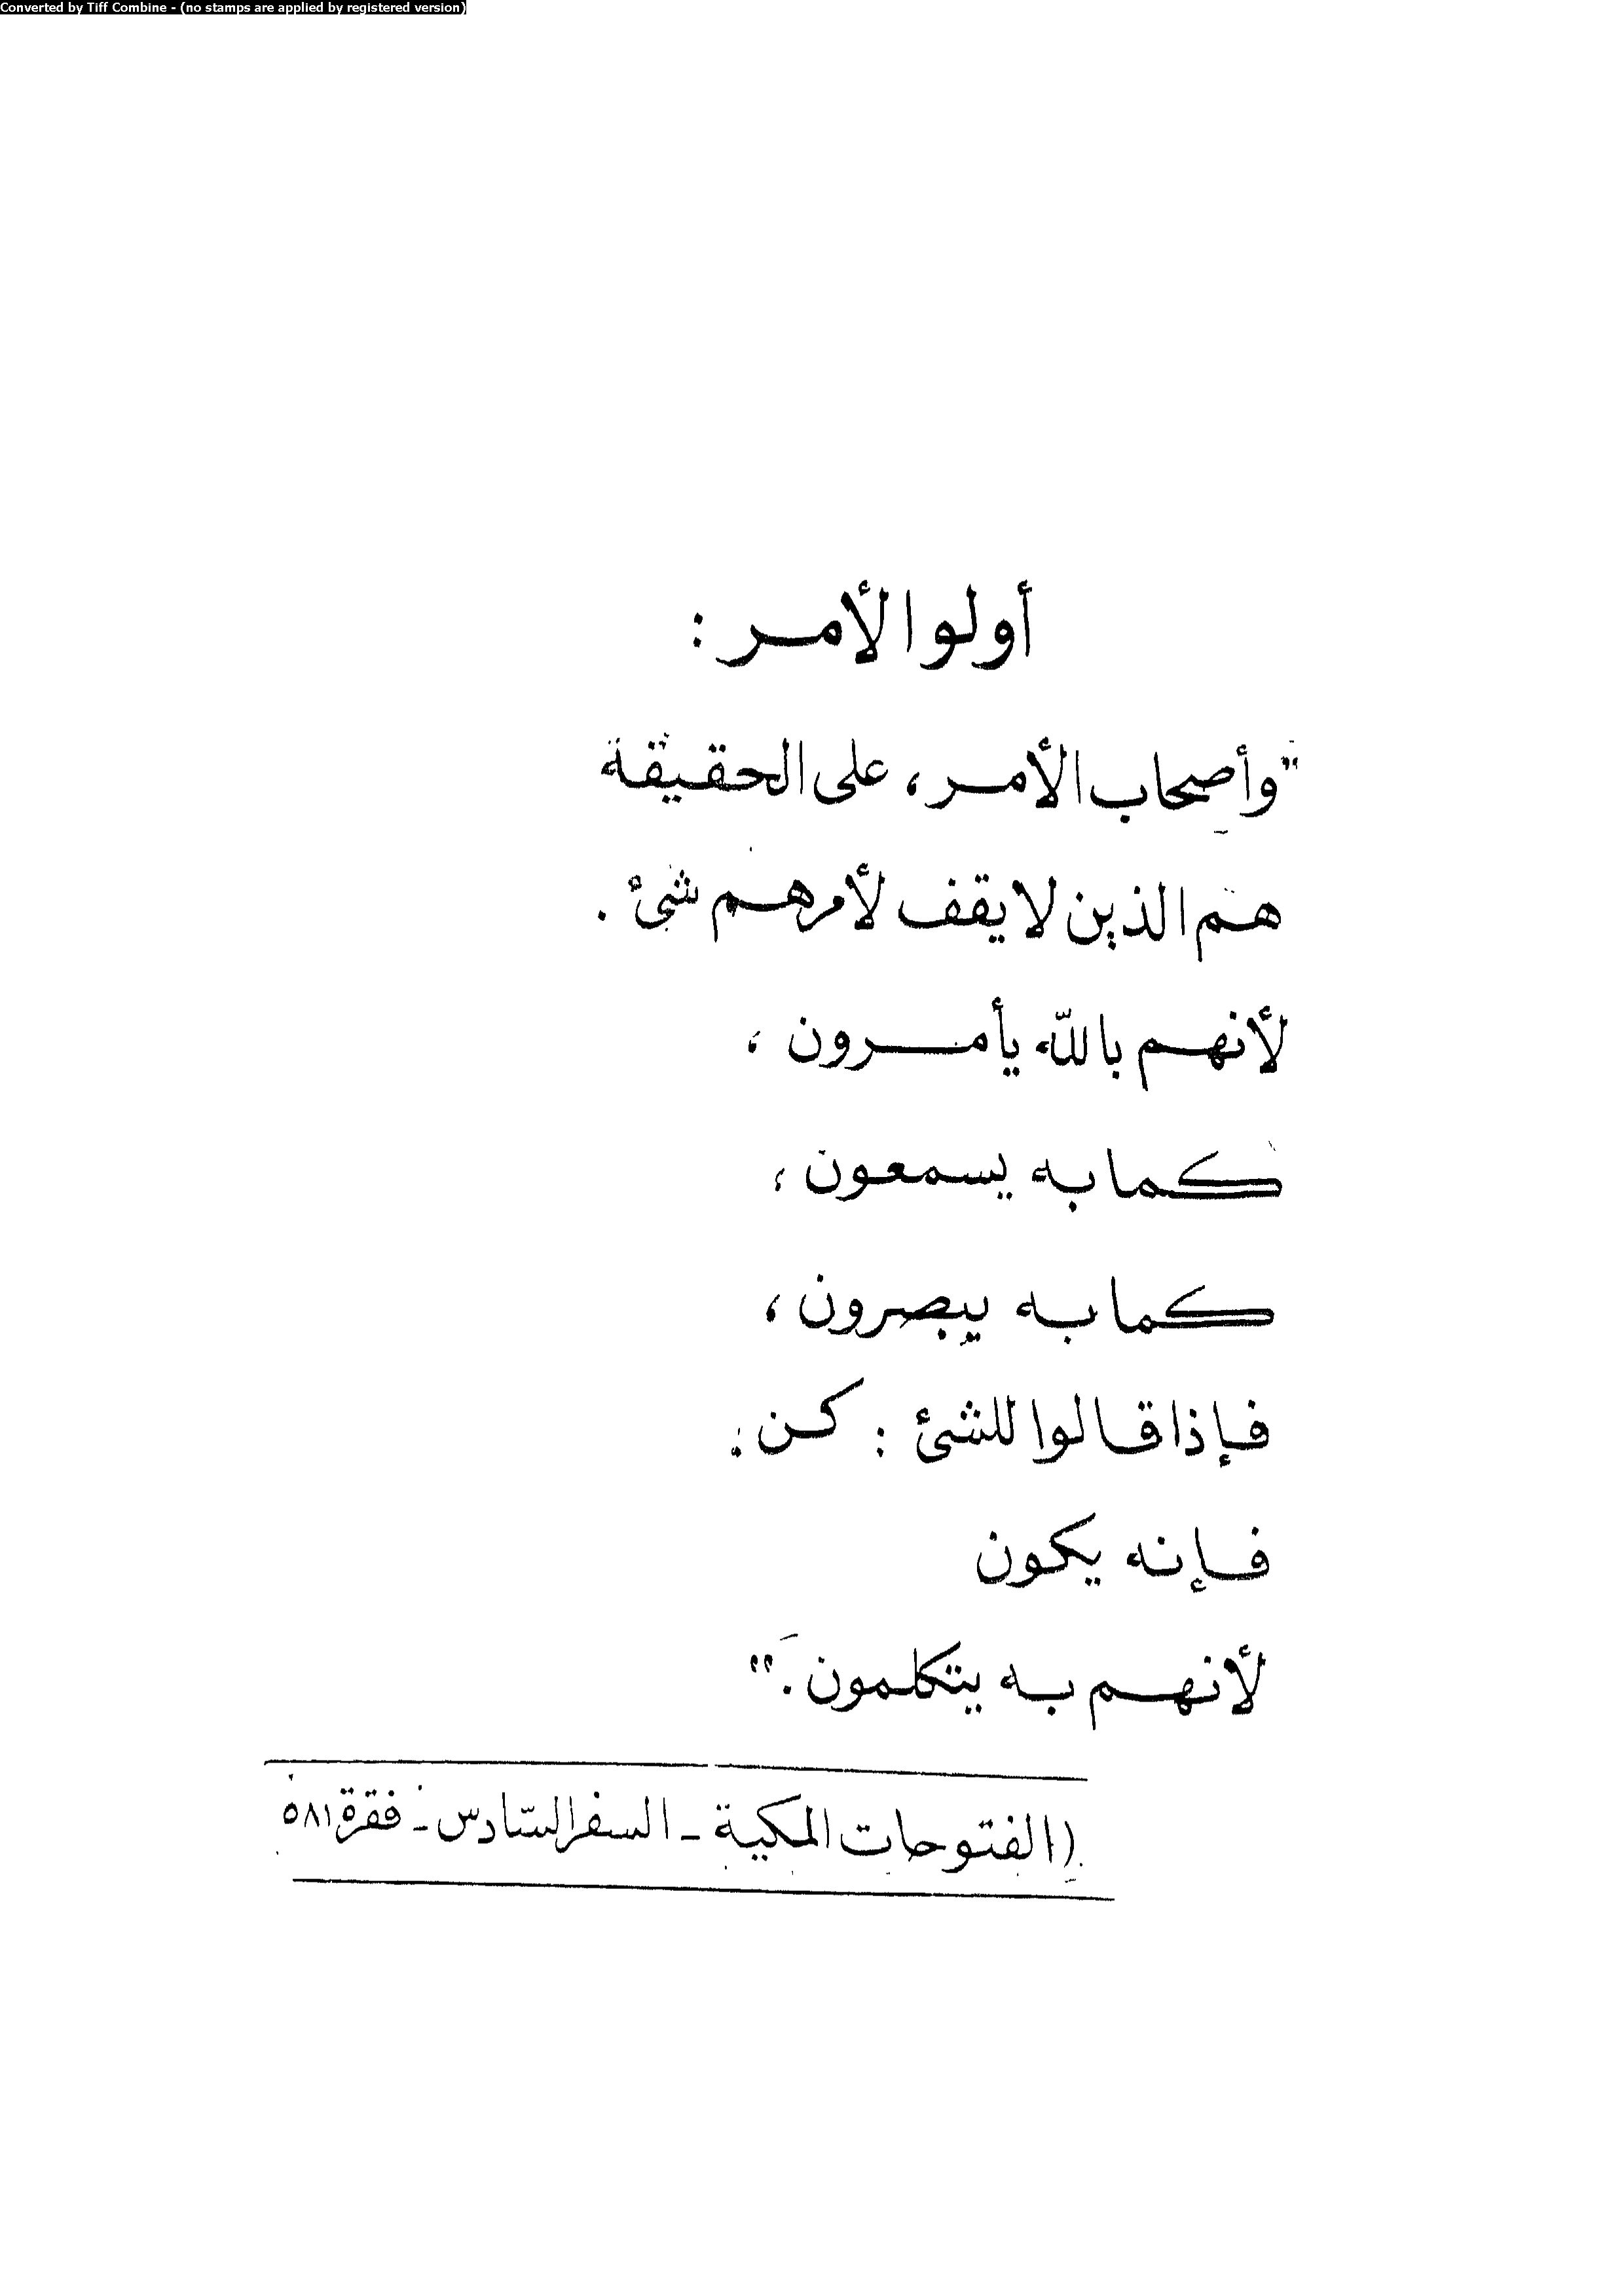 Converted by Tiff Combine - (no stamps are applied by registered version)
أولوا الأمر :
"وأصحاب الأمر ، على الحقيقة
هم الذين لا يقف لأمرهم شئ .
لأنهم بالله يأمرون ،
كما به يسمعون ،
كما به يبصرون ،
فإذا قالوا للشئ : كن :
فإنه يكون
لأنهم به يتكلمون ."
(الفتوحات المكية - السفر السّادس - فقرة ٥٨١